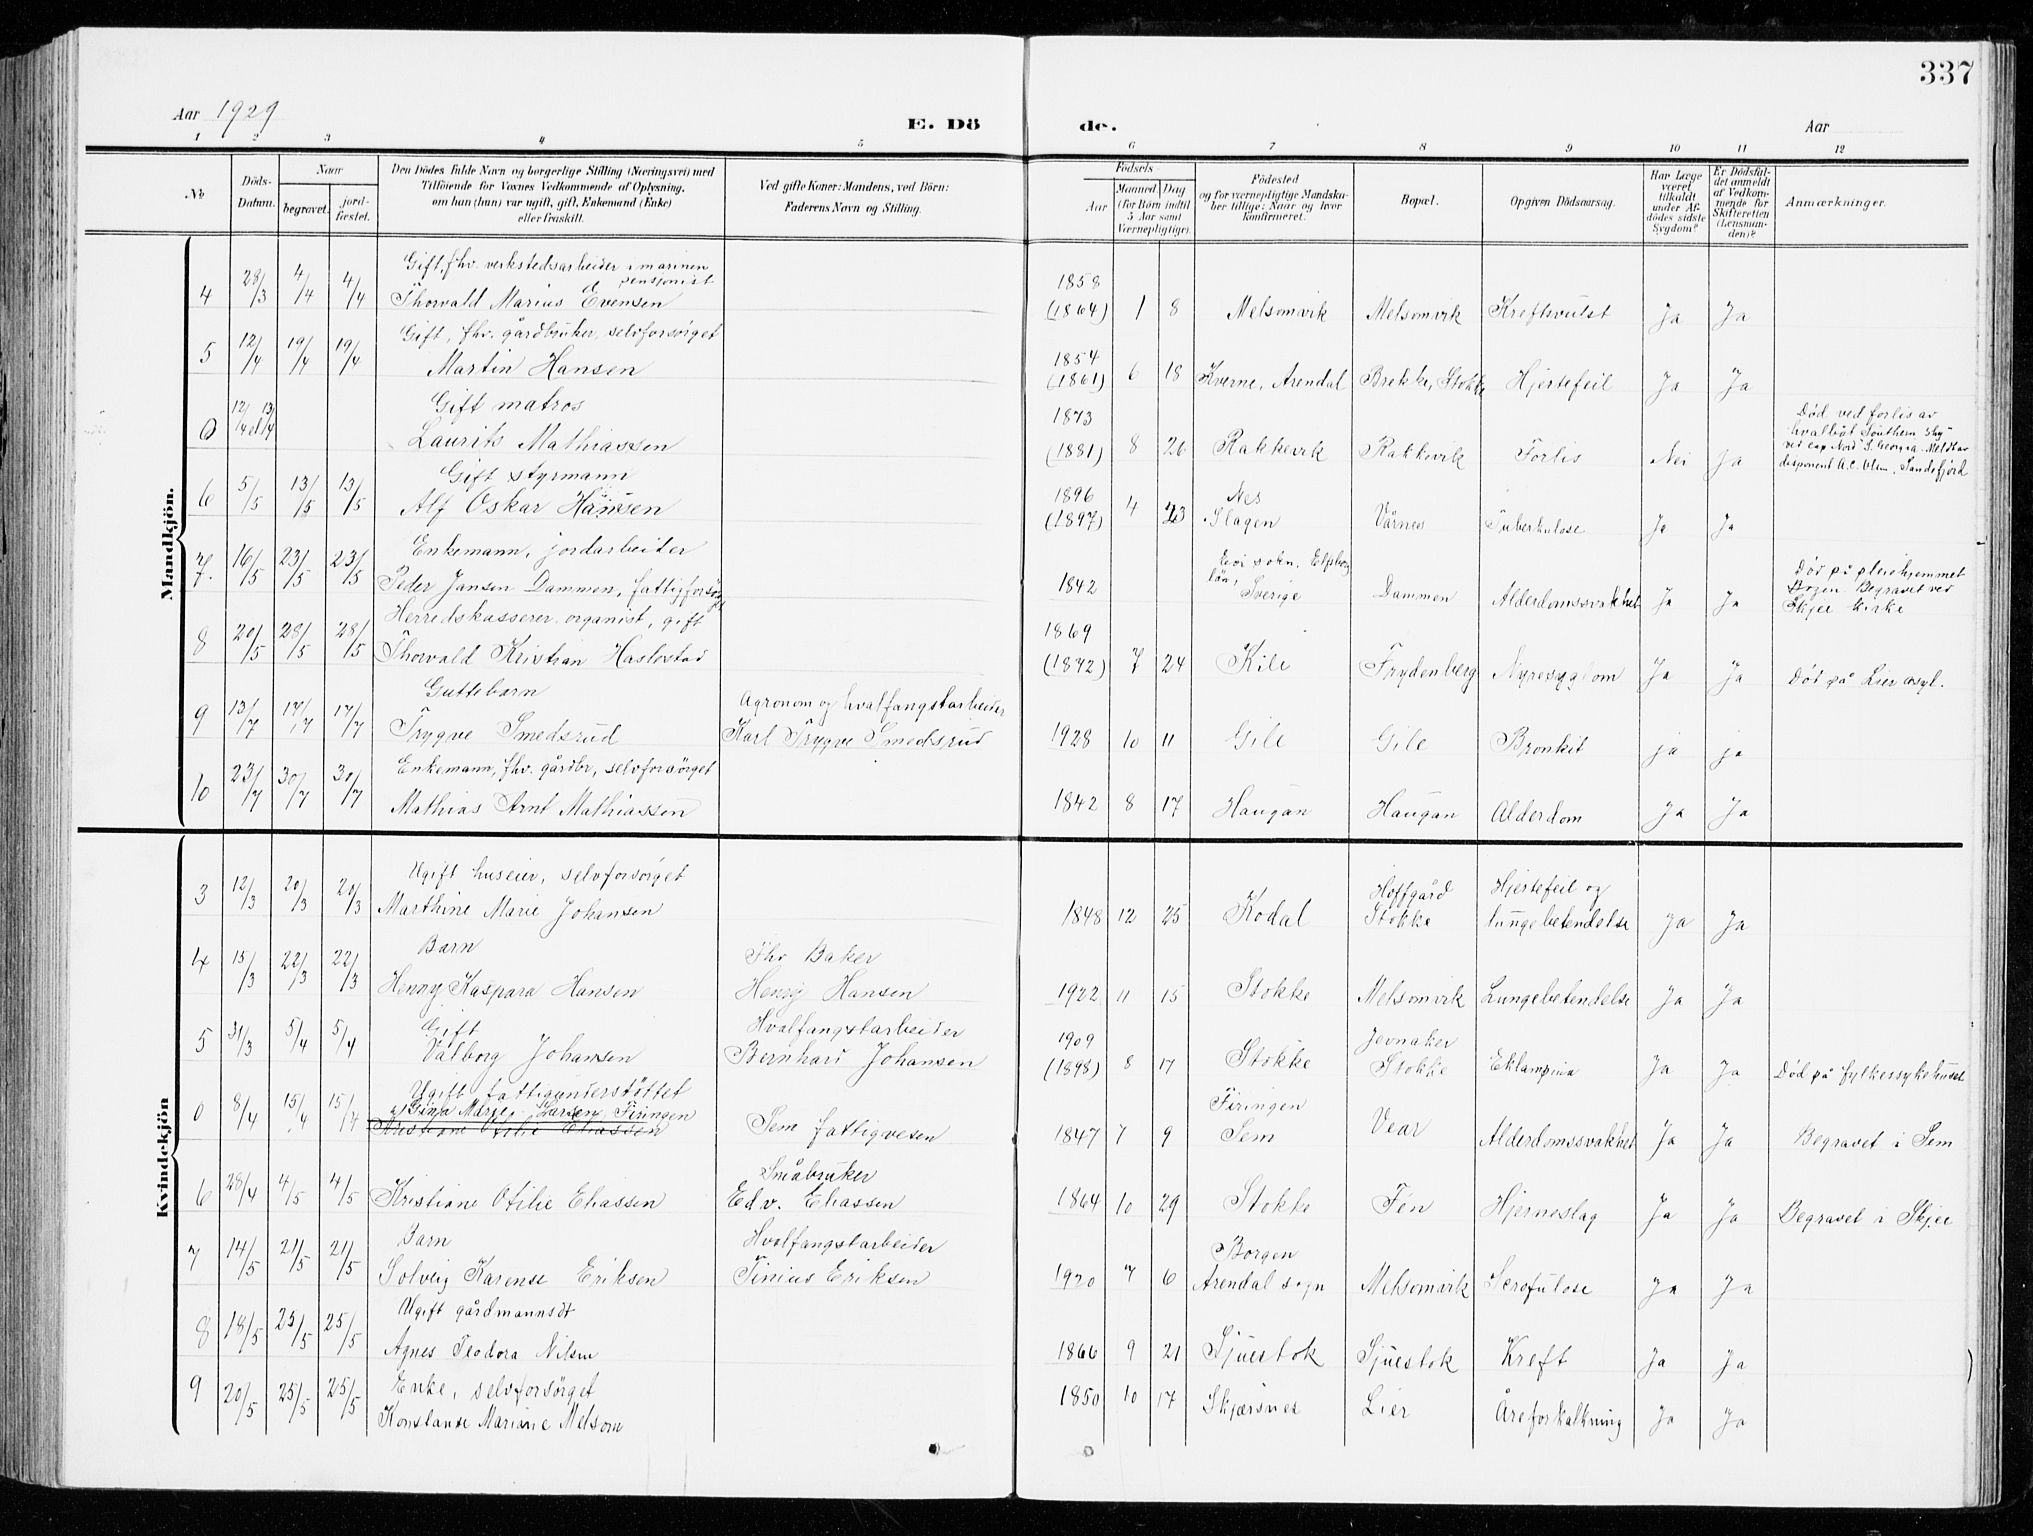 337
Aar 1929
E. Dö
de.
Aar
1 2 3 4 5 6 7 8 9 10 11 12
No
Döds-
Datum.
Naar
begravet.
jord-
fæstet.
Den Dödes fulde Navn og borgerlige Stilling (Næringsvei) med
Tilföiende for Voxnes Vedkommende af Oplysning,
om han (hun) var ugift, gift, Enkemand (Enke)
eller fraskilt.
Ved gifte Koner: Mandens, ved Börn:
Faderens Navn og Stilling.
Födsels
Aar
Maaned Dag
(for Börn indtil
5 Aar samt
Værnepligtige).
Födested
og for værnepligtige Mandska-
ber tillige: Naar og hvor
konfirmeret.
Bopæl.
Opgiven Dödsaarsag.
Har Læge
været
tilkaldt
under Af-
dödes sidste
Sygdom?
Er Dödsfal-
det anmeldt
af Vedkom-
mende for
Skifteretten
(Lensman-
den)?
Anmærkninger.
Mandkjön.
Gift, fhv. verkstedsarbeider i marinen
pensjonist
4 28/3 4/4 4/4 Thorvald Marius Evensen 1858 (1864) 1 8 Melsomvik Melsomvik Kreftsvulst Ja Ja
Gift, fhv. gårdbruker, selvforsørget
5 12/4 19/4 19/4 Martin Hansen 1854 (1861) 6 18 Hverne, Arendal Brekke, Stokke Hjertefeil Ja Ja
Gift matros
0 12/4 el 13/4 Laurits Mathiassen 1873 (1881) 8 26 Rakkevik Rakkevik Forlis Nei Ja
Død ved forlis av
hvalbåt Southern Sky
ved cap Nord S. Georgia. Meldt av
disponent A.C. Olsen, Sandefjord
Gift styrmann
6 5/5 13/5 13/5 Alf Oskar Hansen 1896 (1897) 4 23 Nes Slagen Vårnes Tuberkulose Ja Ja
Enkemann, jordarbeider
7. 16/5 23/5 23/5 Peder Jansen Dammen, fattigforsørget 1842 sokn, Elfsborg län, Sverige Dammen Alderdomssvakhet Ja Ja
Død på pleiehjemmet
Bogen. Begravet ved
Skjee kirke
Herredskasserer, organist, gift
8 20/5 28/5 28/5 Thorvald Kristian Haslestad 1869 (1872) 7 24 Kile Frydenberg Nyresygdom Ja Ja Død på Lier asyl.
Guttebarn
Agronom og hvalfangstarbeider
9 13/7 17/7 17/7 Trygve Smedsrud Karl Trygve Smedsrud 1928 10 11 Gile Gile Bronkit ja ja
Enkemann, fhv. gårdbr, selvforsørget
10 23/7 30/7 30/7 Mathias Arnt Mathiassen 1842 8 17 Haugan Haugan Alderdom Ja Ja
Kvindekjön
Ugift huseier, selvforsørget
3 12/3 20/3 20/3 Marthine Marie Johansen 1848 12 25 Kodal Hoffgård Stokke Hjertefeil og lungebetendelse Ja Ja
Barn
Fhv Baker
4 15/3 22/3 22/3 Henny Kaspara Hansen Henrij Hansen 1922 11 15 Stokke Melsomvik Lungebetendelse Ja Ja
Gift
Hvalfangstarbeider
5 31/3 5/4 5/4 Valborg Johansen Bernhard Johansen 1909 (1898) 8 17 Stokke Jevnaker Stokke Eklampsia Ja Ja Død på fylkessykehuset
Ugift, fattigunderstøttet
0 8/4 15/4 15/4 Gina Marie Larsen, Firingen
Kristiane Otilie Eliassen
Sem fattigvesen 1847 7 9 Firingen Sem Vear Alderdomssvakhet Ja Ja Begravet i Sem
Småbruker
6 28/4 4/5 4/5 Kristiane Otilie Eliassen Edv. Eliassen 1864 10 29 Stokke Fen Hjerneslag Ja Ja Begravet i Skjee
Barn
Hvalfangstarbeider
7 14/5 21/5 21/5 Solveig Karense Eriksen Tinius Eriksen 1920 7 6 Borgen Arendal sogn Melsomvik Scrofulose Ja Ja
Ugift gårdmannsdt
8 18/5 25/5 25/5 Agnes Teodora Nilsen 1866 9 21 Sjuestok Sjuestok Kreft Ja Ja
Enke, selvforsørget
9 20/5 25/5 25/5 Konstanse Mariane Melsom 1850 10 17 Skjærsnes Lier Åreforkalkning Ja Ja